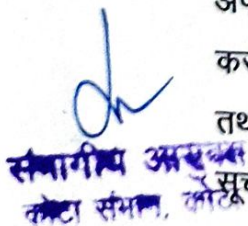 अप
कर
तथ
संभागीय आयुक्त
सूच
कोटा संभाग, कोटा